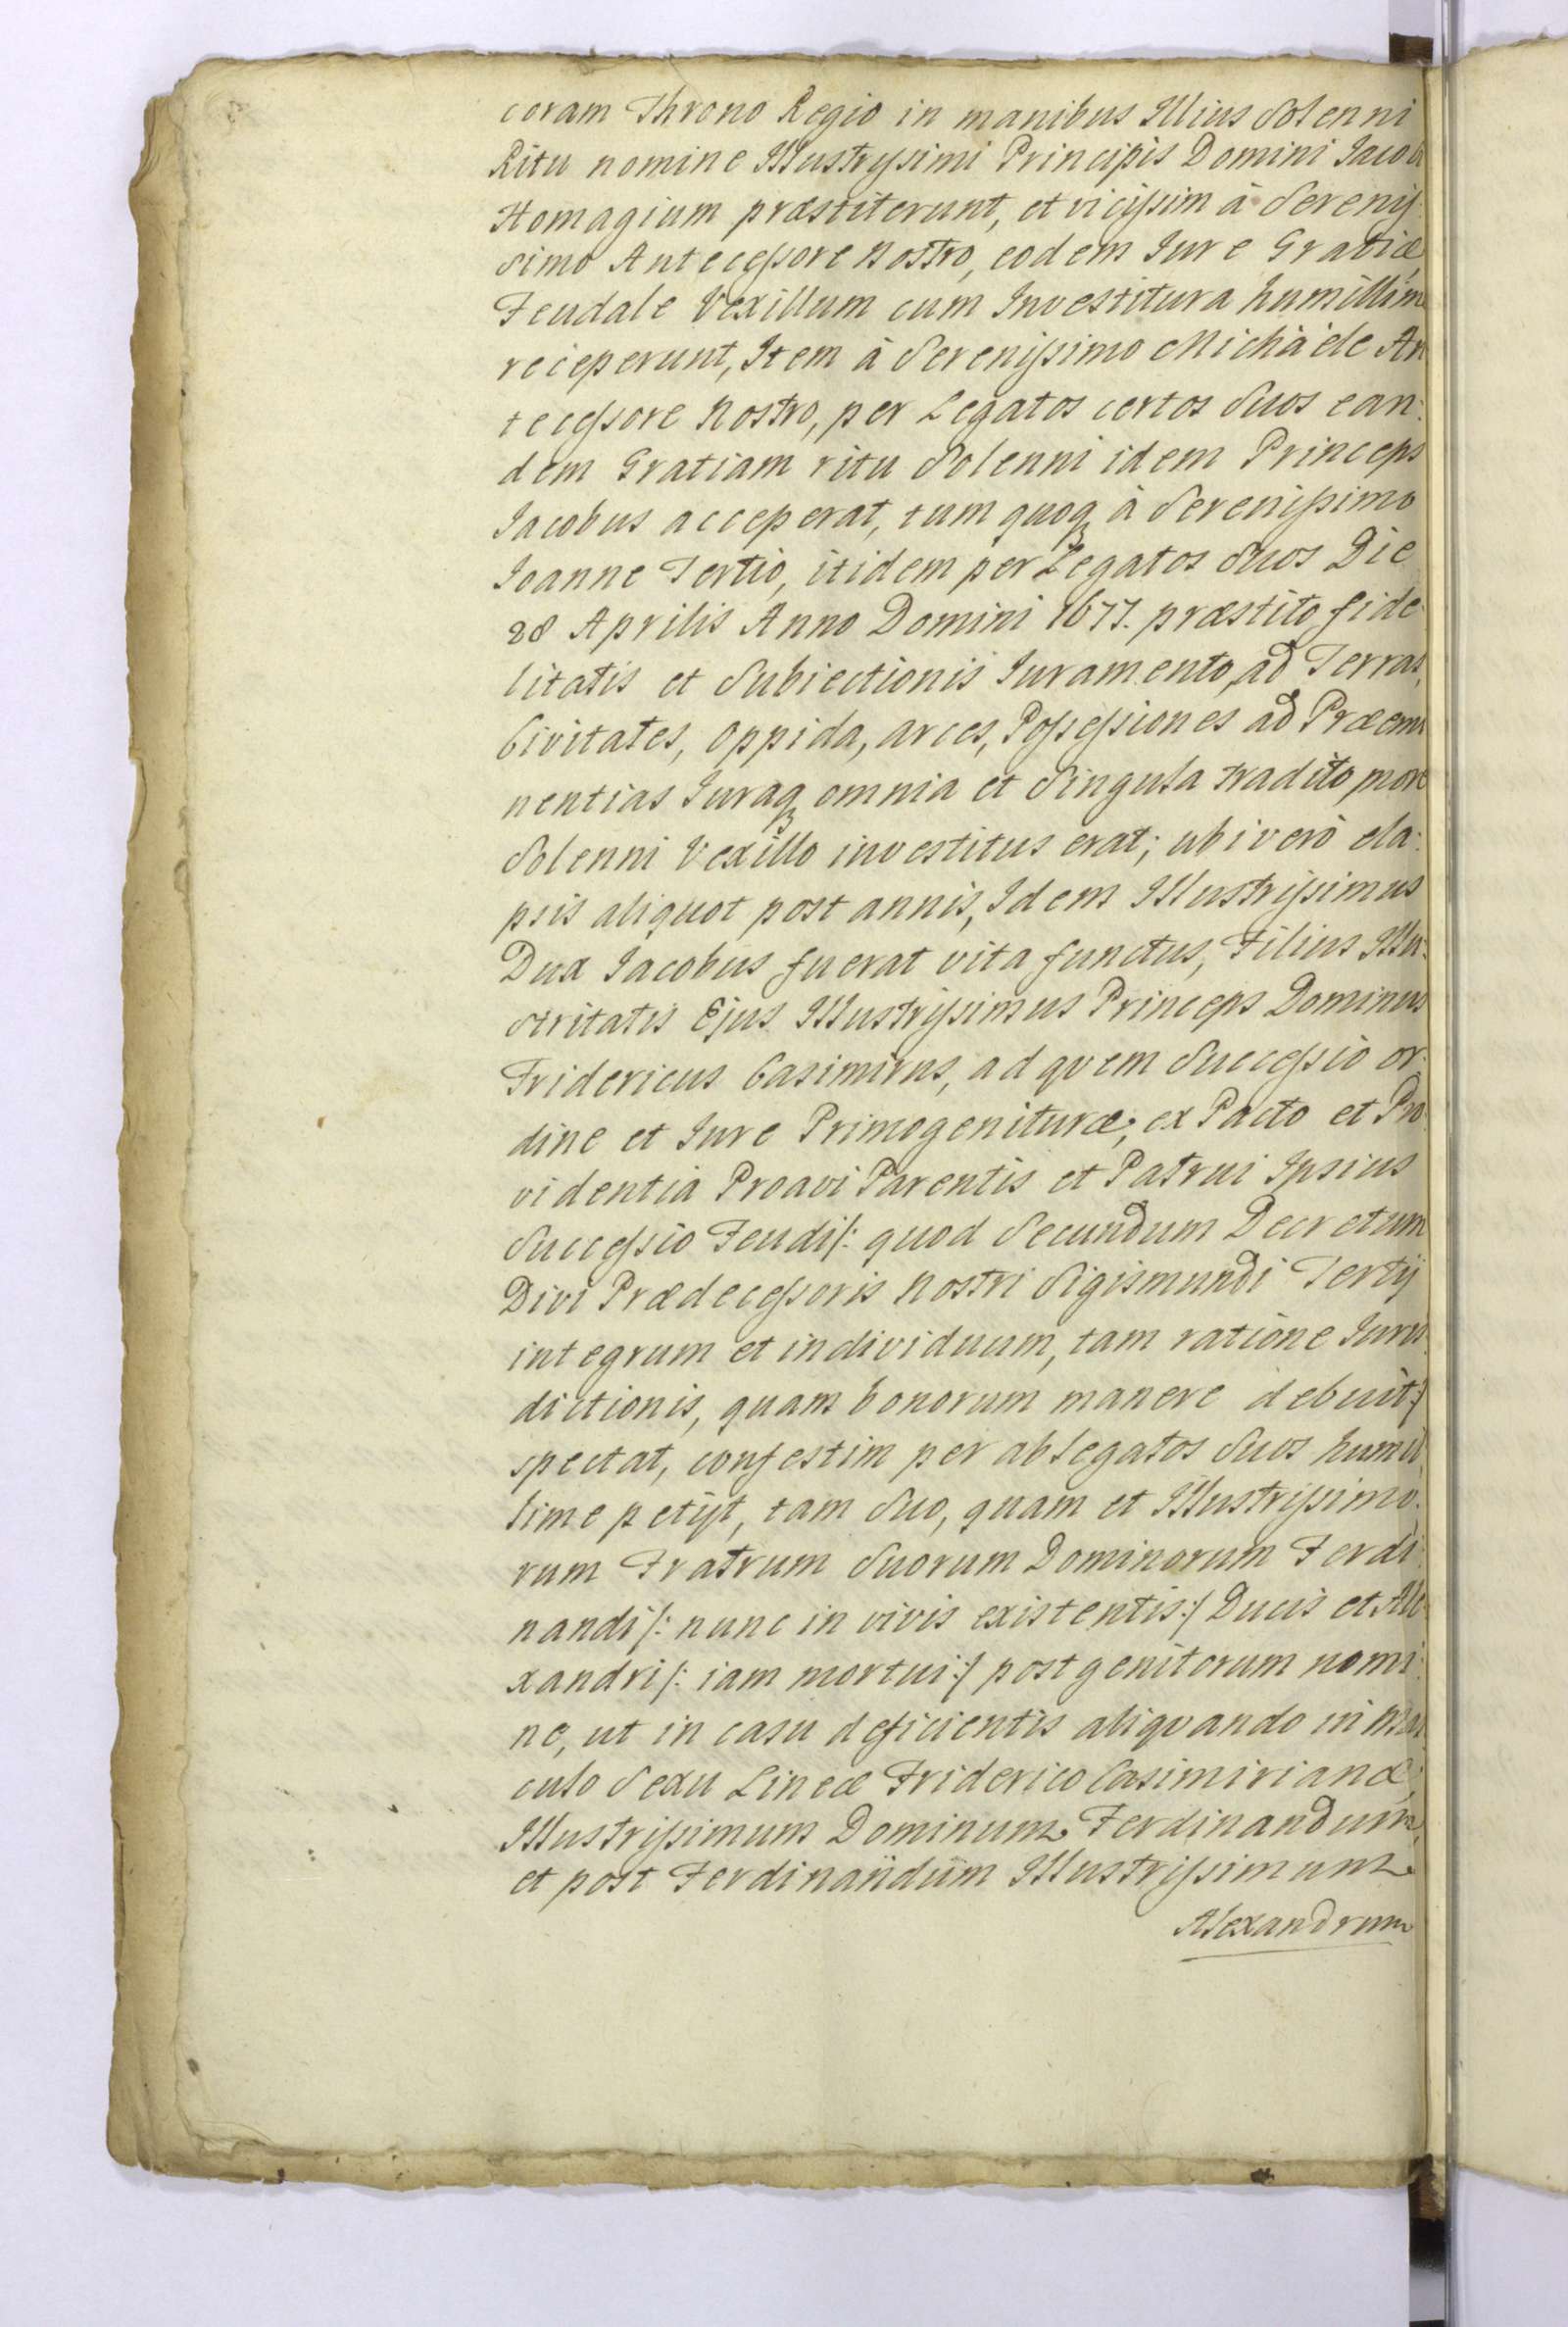 coram Throno Regio in manibus Illius Solenni
Ritu nomine Illustrissimi Principis Domini Jacobi
Homagium præstiterunt, et vicissim à Serenis:
simo Antecessore Nostro, eodem Jure Gratiæ,
Feudale Vexillum cum Investitura humillime
receperunt, Item à Serenissimo Michaële An
tecessore Nostro, per Legatos certos Suos ean:
dem Gratiam ritu Solenni idem Princeps
Jacobus acceperat, tum quoq à Serenissimo
Joanne Tertio, itidem per Legatos Suos Die
28 Aprilis Anno Domini 1677. præstito fide
litatis et Subiectionis Juramento, ad Terras,
Civitates, Oppida, arces, Possessiones ad Præemi
nentias Juraq omnia et Singula tradito, more
Solenni Vexillo investitus erat; ubi verò ela:
psis aliquot post annis, Idem Illustrissimus
Dux Jacobus fuerat vita functus, Filius Illu:
stritatis Ejus Illustrissimus Princeps Dominus
Fridericus Casimirus, ad quem Successio or:
dine et Jure Primogenituræ, ex Pacto et Pro
videntia Proavi Parentis et Patrui Ipsius
Successio Feudi /: quod Secundum Decretum
Divi Prædecessoris Nostri Sigismundi Tertij
integrum et individuum, tam ratione Juris
dictionis, quam bonorum manere debuit :/
spectat, confestim per ablegatos Suos humil
lime petijt, tam Suo, quam et Illustrissimo:
rum Fratrum Suorum Dominorum Ferdi:
nandi /: nunc in vivis existentis :/ Ducis et Ale
xandri /: iam mortui :/ postgenitorum nomi:
ne, ut in casu deficientis aliquando in Mas
culo Sexu Lineæ Friderico Casimirianæ,
Illustrissimum Dominum Ferdinandum,
et post Ferdinandum Illustrissimum
Alexandrum